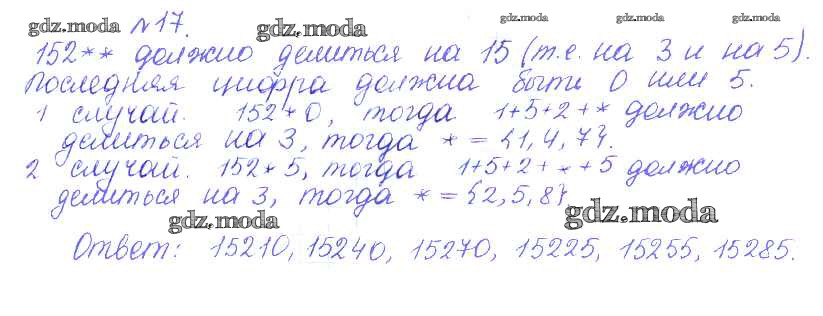 gdz.moda №17. gdz.moda gdz.moda gdz.moda gdz.moda
152** должно делиться на 15 (т.е. на 3 и на 5).
Последняя цифра должна быть 0 или 5.
1 случай. 152*0, тогда 1+5+2+* должно
делиться на 3, тогда * = {1,4,7}.
2 случай. 152*5, тогда 1+5+2+*+5 должно
делиться на 3, тогда * = {2,5,8}.
gdz.moda gdz.moda
Ответ: 15210, 15240, 15270, 15225, 15255, 15285.